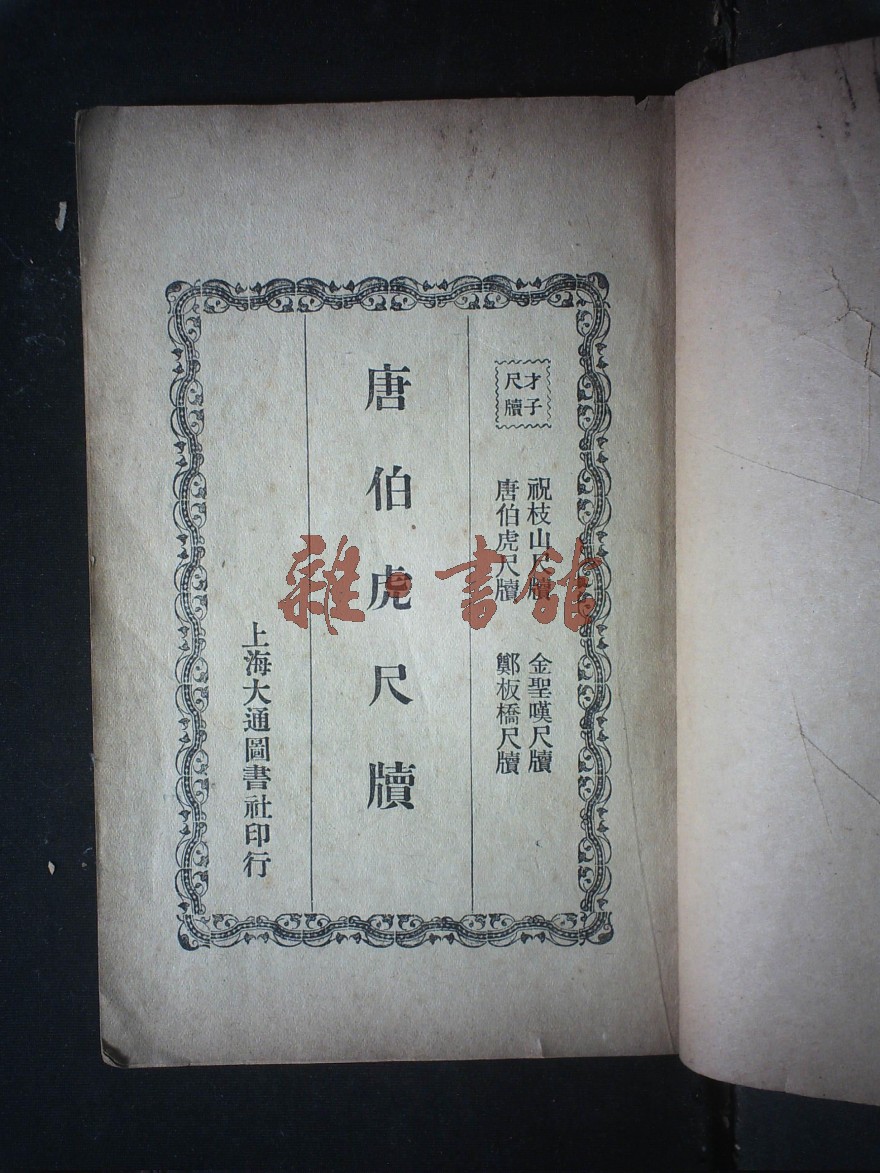 才子
尺牘
祝枝山尺牘　金聖嘆尺牘
唐伯虎尺牘　鄭板橋尺牘
唐伯虎尺牘
上海大通圖書社印行
雜·書館